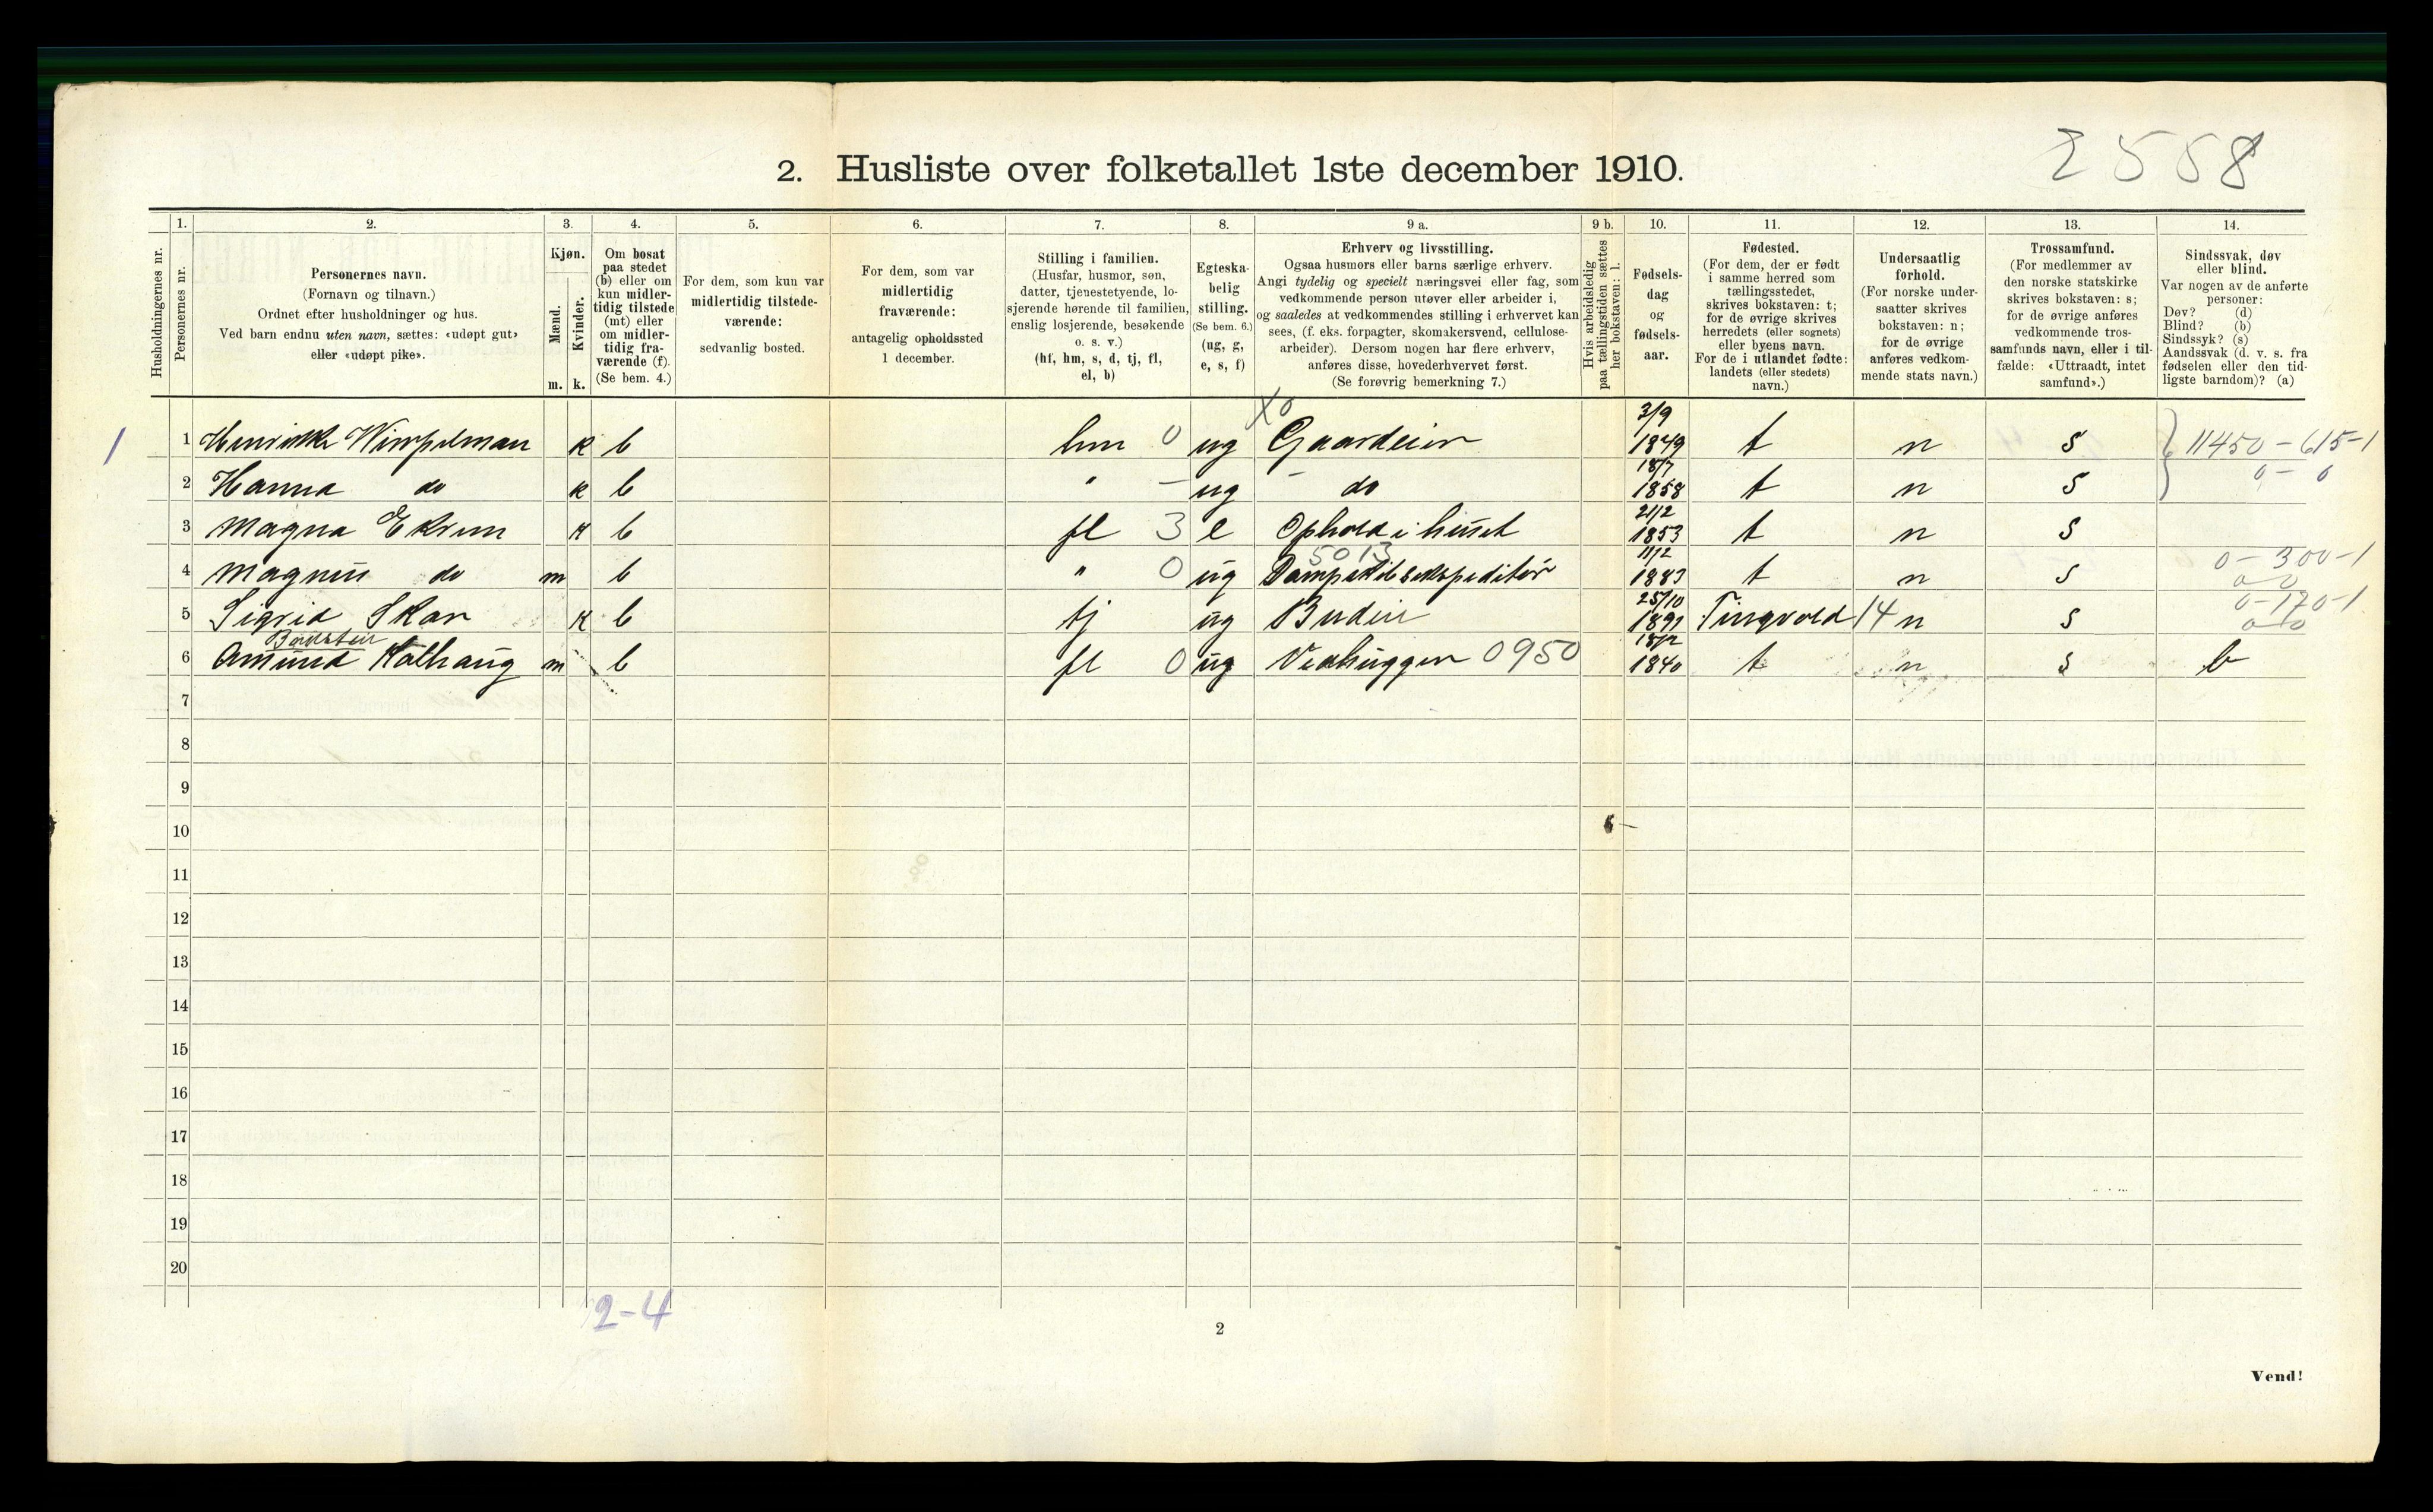 2. Husliste over folketallet 1ste december 1910.
2558
1. 2. 3. 4. 5. 6. 7. 8. 9 a. 9 b. 10. 11. 12. 13. 14.
Husholdningernes nr.
Personernes nr.
Personernes navn.
(Fornavn og tilnavn.)
Ordnet efter husholdninger og hus.
Ved barn endnu uten navn, sættes: «udøpt gut»
eller «udøpt pike».
Kjøn.
Mænd.
Kvinder.
m. k.
Om bosat
paa stedet
(b) eller om
kun midler-
tidig tilstede
(mt) eller
om midler-
tidig fra-
værende (f).
(Se bem. 4.)
For dem, som kun var
midlertidig tilstede-
værende:
sedvanlig bosted.
For dem, som var
midlertidig
fraværende:
antagelig opholdssted
1 december.
Stilling i familien.
(Husfar, husmor, søn,
datter, tjenestetyende, lo-
sjerende hørende til familien,
enslig losjerende, besøkende
o. s. v.)
(hf, hm, s, d, tj, fl,
el, b)
Egteska-
belig
stilling.
(Se bem. 6.)
(ug, g,
e, s, f)
Erhverv og livsstilling.
Ogsaa husmors eller barns særlige erhverv.
Angi tydelig og specielt næringsvei eller fag, som
vedkommende person utøver eller arbeider i,
og saaledes at vedkommendes stilling i erhvervet kan
sees, (f. eks. forpagter, skomakersvend, cellulose-
arbeider). Dersom nogen har flere erhverv,
anføres disse, hovederhvervet først.
(Se forøvrig bemerkning 7.)
Hvis arbeidsledig
paa tællingstiden sættes
her bokstaven: l.
Fødsels-
dag
og
fødsels-
aar.
Fødested.
(For dem, der er født
i samme herred som
tællingsstedet,
skrives bokstaven: t;
for de øvrige skrives
herredets (eller sognets)
eller byens navn.
For de i utlandet fødte:
landets (eller stedets)
navn.)
Undersaatlig
forhold.
(For norske under-
saatter skrives
bokstaven: n;
for de øvrige
anføres vedkom-
mende stats navn.)
Trossamfund.
(For medlemmer av
den norske statskirke
skrives bokstaven: s;
for de øvrige anføres
vedkommende tros-
samfunds navn, eller i til-
fælde: «Uttraadt, intet
samfund».)
Sindssvak, døv
eller blind.
Var nogen av de anførte
personer:
Døv? (d)
Blind? (b)
Sindssyk? (s)
Aandssvak (d. v. s. fra
fødselen eller den tid-
ligste barndom)? (a)
X0 3/9
1 1 Henrikke Wimpelman k b hm 0 ug Gaardeier 1849 t n s 11450-615-1
18/7 0-0
2 Hanna do k b " - ug - do 1858 t n s
21/2
3 Magna Ekrem k b fl 3 e Ophold i huset 1853 t n s
5013 11/2 0-300-1
4 Magnus do m b " 0 ug Dampskibsekspeditør 1883 t n s 0-0
25/10 0-170-1
5 Sigrid Skar k b tj ug Budeie 1891 Tingvold 14 n s 0-0
6 Amund Kalhaug m b fl 0 ug Vedhugger 0950 1840 t n s b
7
8
9
10
11
12
13
14
15
16
17
18
19
20
2-4
2
Vend!